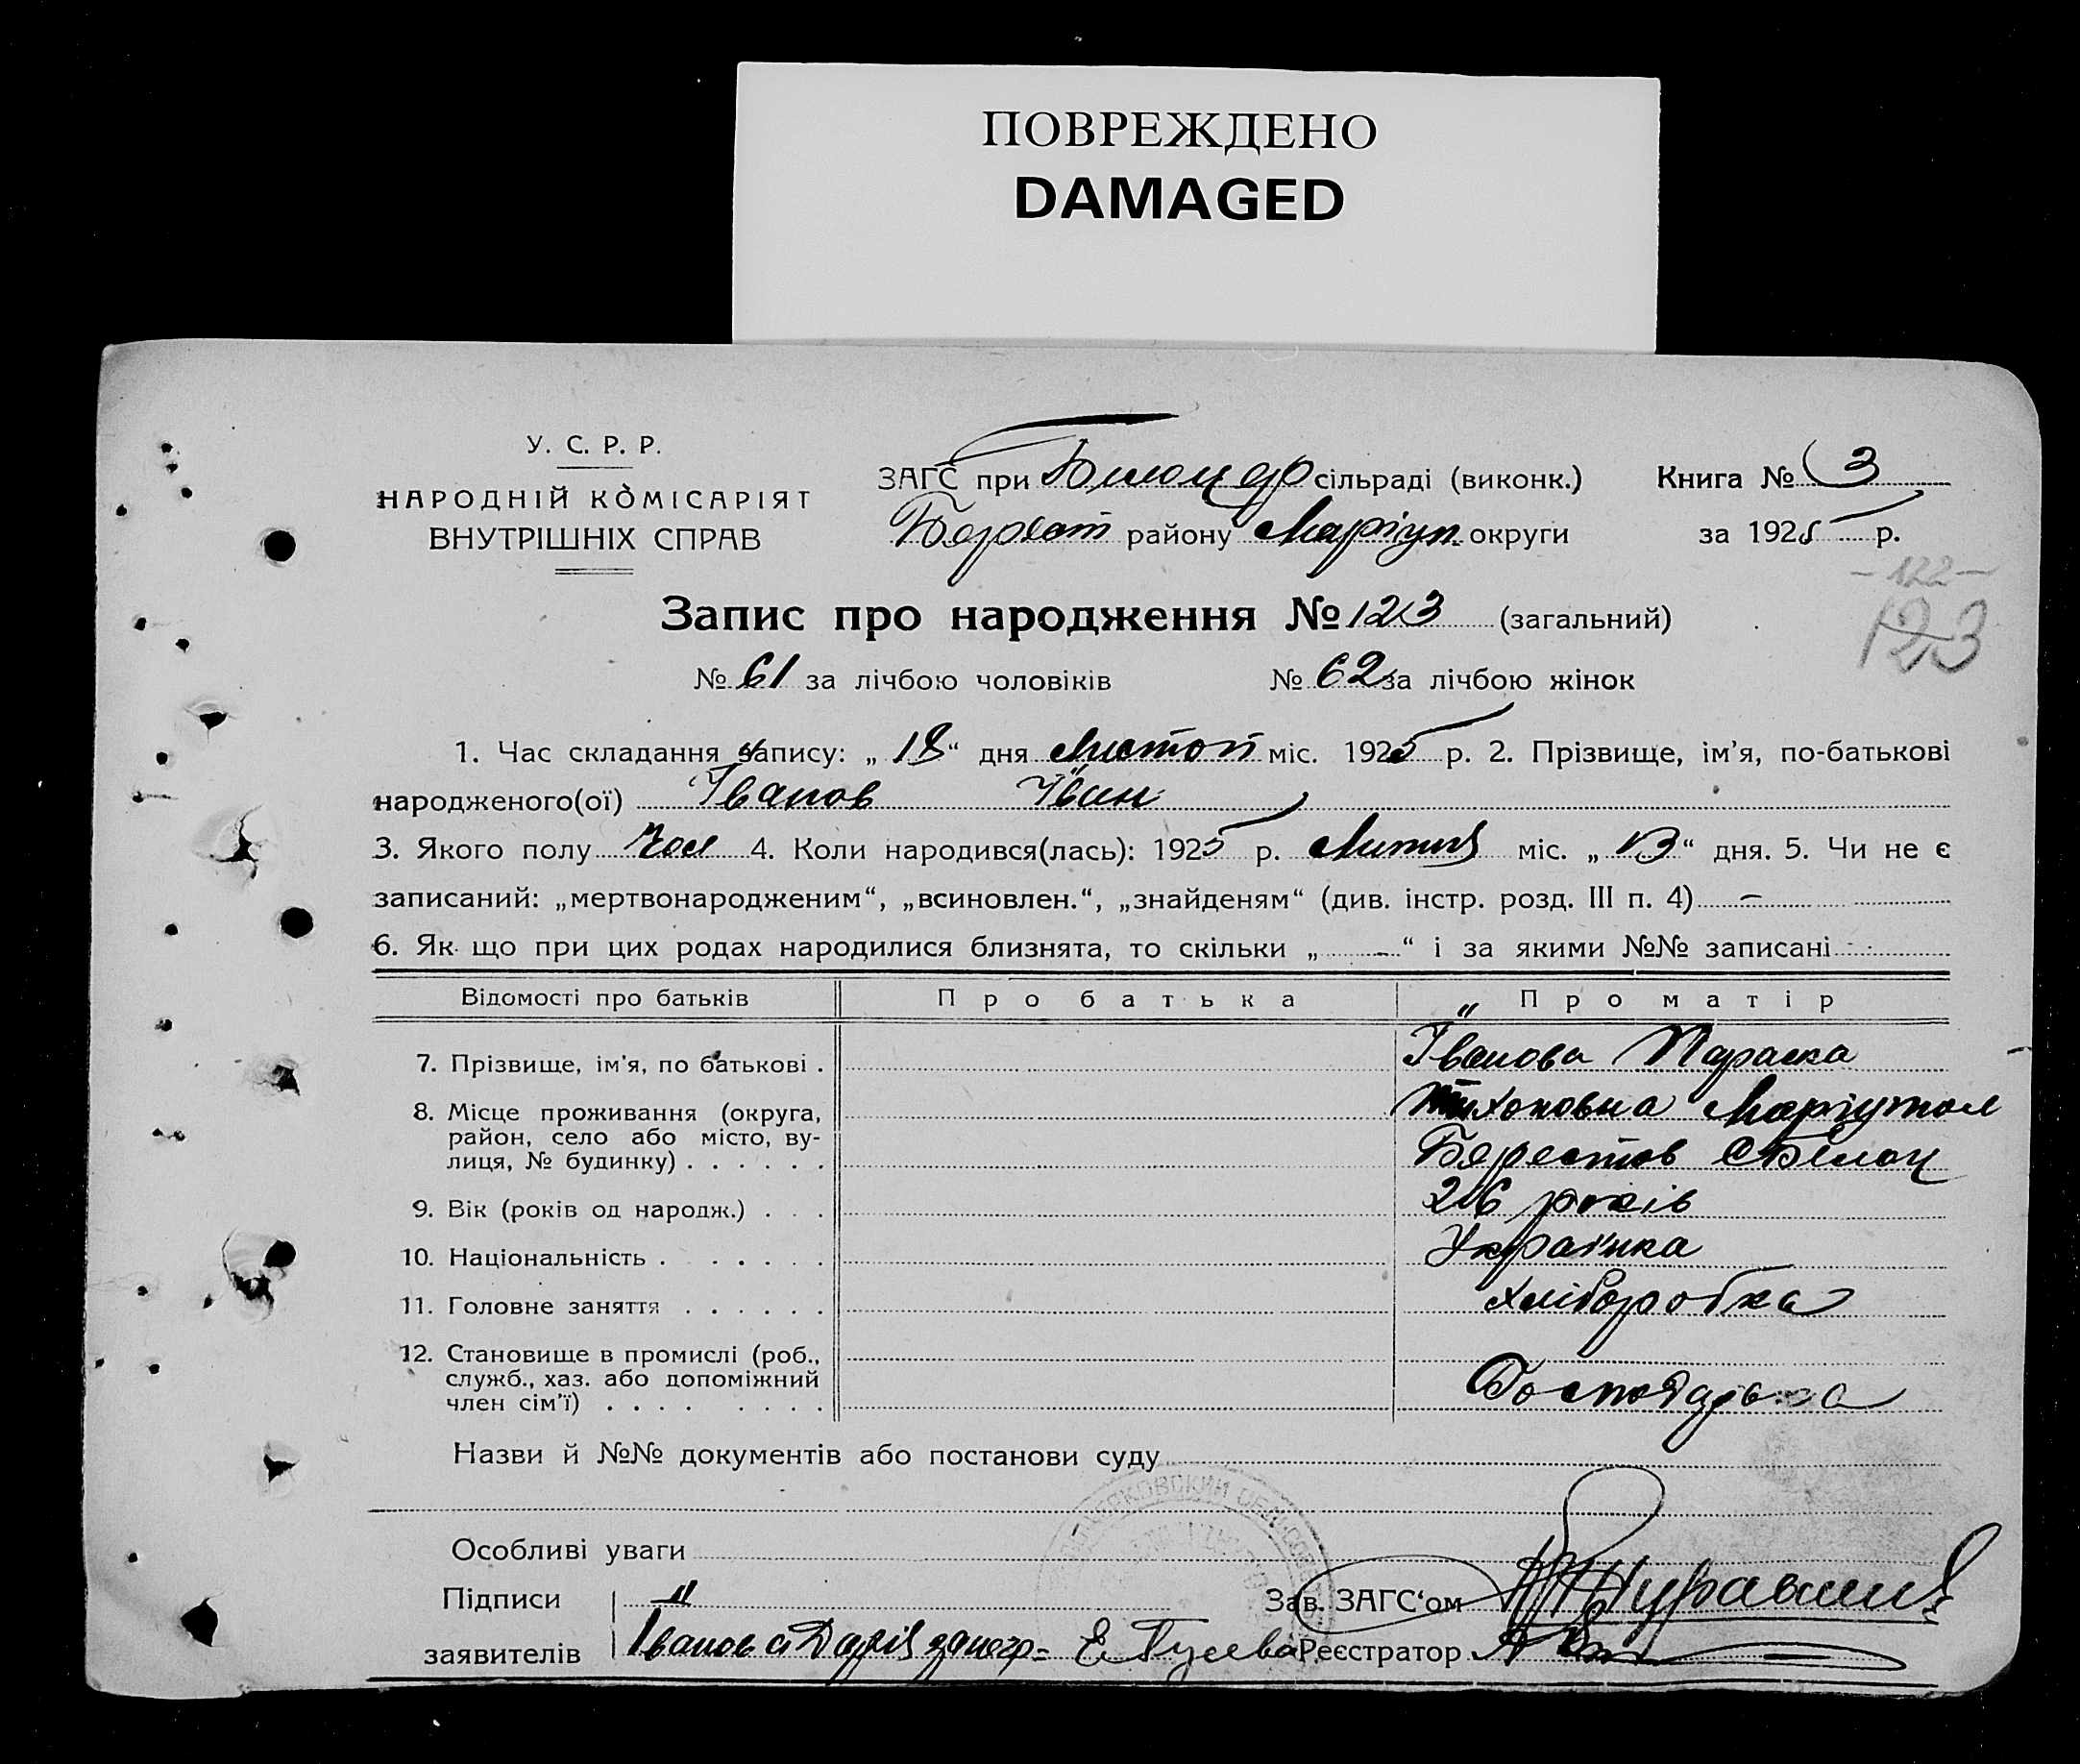 ПОВРЕЖДЕНО
DAMAGED
У. С. Р. Р.
НАРОДНІЙ КОМІСАРІЯТ
ВНУТРІШНІХ СПРАВ
ЗАГС при сільраді (виконк.) Книга № 3
Берест району Маріуп. округи за 1925 р.
-122-
123
Запис про народження № 123 (загальний)
№ 61 за лічбою чоловіків № 62 за лічбою жінок
1. Час складання запису: „ 18 “ дня Листоп міс. 1925 р. 2. Прізвище, ім’я, по-батькові
народженого(ої) Іванов Іван
3. Якого полу Чол 4. Коли народився(лась): 1925 р. міс. „ 13 “ дня. 5. Чи не є
записаний: „мертвонародженим“, „всиновлен.“, „знайденям“ (див. інстр. розд. III п. 4) —
6. Як що при цих родах народилися близнята, то скільки „ – “ і за якими №№ записані
Відомості про батьків Про батька Про матір
7. Прізвище, ім’я, по батькові . Іванова Параска
8. Місце проживання (округа, Тихоновна Маріупол
район, село або місто, ву-
лиця, № будинку) . . . . . . Берестов
9. Вік (років од народж.) . . . 26 років
10. Національність . . . . . . Українка
11. Головне заняття . . . . . . хліборобка
12. Становище в промислі (роб.,
служб., хаз. або допоміжний
член сім’ї) . . . . . . . . Господарька
Назви й №№ документів або постанови суду
Особливі уваги
Підписи Зав. ЗАГС‘ом
заявителів Іванова Дарія Е Гусева Реєстратор